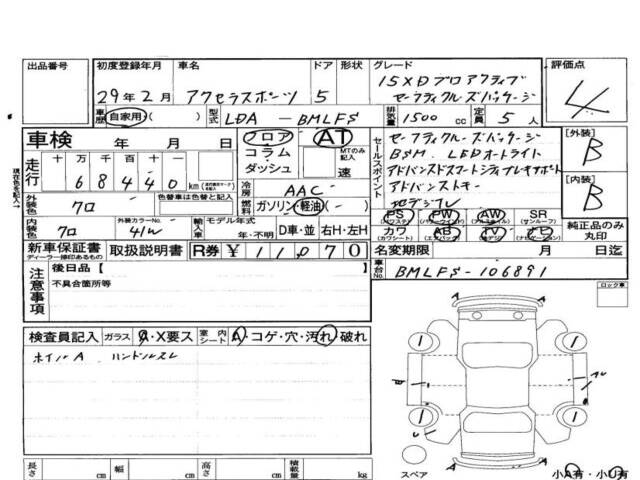 出品番号 初度登録年月 車名 ドア 形状 グレード 評価点
29年2月 アクセラスポーツ 5 15XDプロアクティブ セーフティクルーズパッケージ 4
車歴 自家用・( ) 型式 LDA - BMLFS 排気量 1500 cc 定員 5 人
車検 年 月 日 フロア コラム ダッシュ AT MTのみ記入 速
セールスポイント セーフティクルーズパッケージ
BSM LEDオートライト
アドバンスドスマートシティブレーキサポート
アドバンストキー
地デジフル
[外装] B
[内装] B
現在色を記入→
走行 十 万 千 百 十 一 68440 km
冷房 AAC
外装色 クロ 色替車は色替と記入 燃料 ガソリン・軽油・( )
内装色 クロ 外装カラーNo. 41W 輸入車 モデル年式 年・不明 D車・並 右H・左H
PS (パワステ) PW (パワーウィンドウ) AW (アルミホイル) SR (サンルーフ)
カワ (カワシート) AB (エアバッグ) TV (テレビ) ナビ (ナビゲーション)
純正品のみ丸印
新車保証書 ディーラー捺印あるもの 取扱説明書 R券 ¥ 11070
名変期限 月 日迄
注意事項 後日品【
不具合箇所等
車台No. BMLFS-106891
ロック車
検査員記入 ガラス A・X要ス 室内シート A・コゲ・穴・汚れ・破れ
ホイルA ハンドルスレ
A
A
スペア
小A有・小U有
長さ cm 幅 cm 高さ cm 積載量 kg